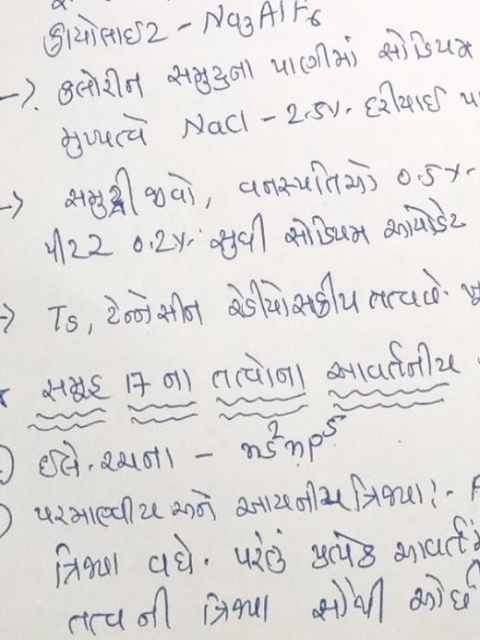 ક્રાયોલાઈટ - Na3AlF6
→ ક્લોરીન સમુદ્રના પાણીમાં સોડિયમ
મુખ્યત્વે NaCl - 2.5%. દરીયાઈ
→ સમુદ્રી જીવો, વનસ્પતિઓ 0.5%.
0.2%. સુધી સોડિયમ આયોડેટ
→ Ts, ટેન્નેસીન રેડીયોસક્રીય તત્વ છે.
સમૂહ 17 ના તત્વોના આવર્તનીય
ઈલે. રચના - ns²np⁵
પરમાણ્વીય અને આયનીય ત્રિજ્યા :-
ત્રિજ્યા વધે. પરંતુ પ્રત્યેક
તત્વ ની ત્રિજ્યા સૌથી ઓછી